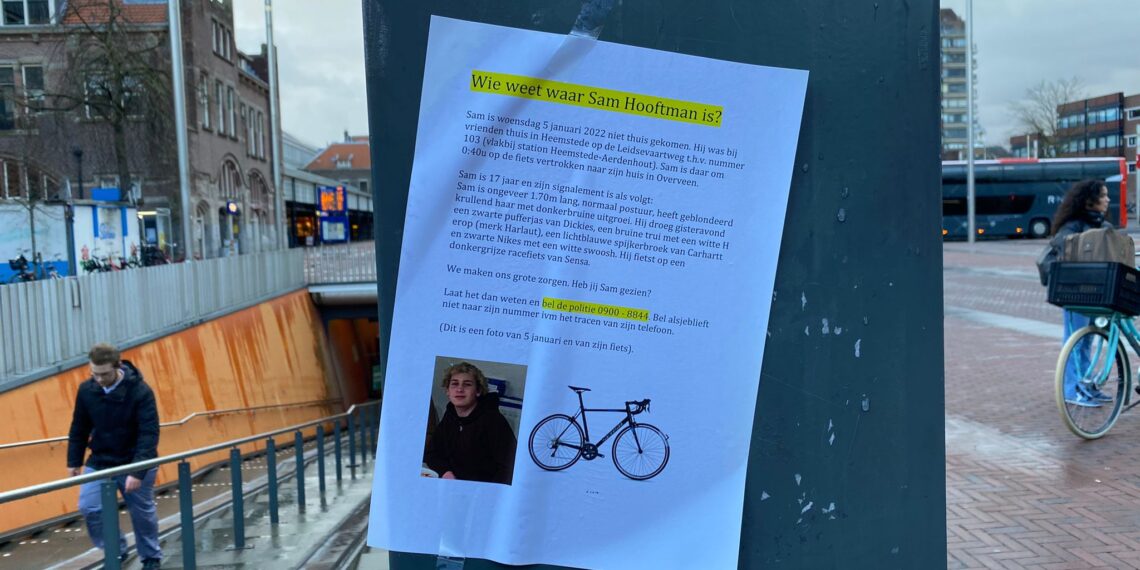 Wie weet waar Sam Hooftman is?
Sam is woensdag 5 januari 2022 niet thuis gekomen. Hij was bij
vrienden thuis in Heemstede op de Leidsevaartweg t.h.v. nummer
103 (vlakbij station Heemstede-Aerdenhout). Sam is daar om
0:40u op de fiets vertrokken naar zijn huis in Overveen.
Sam is 17 jaar en zijn signalement is als volgt:
Sam is ongeveer 1.70m lang, normaal postuur, heeft geblondeerd
krullend haar met donkerbruine uitgroei. Hij droeg gisteravond
een zwarte pufferjas van Dickies, een bruine trui met een witte H
erop (merk Harlaut), een lichtblauwe spijkerbroek van Carhartt
en zwarte Nikes met een witte swoosh. Hij fietst op een
donkergrijze racefiets van Sensa.
We maken ons grote zorgen. Heb jij Sam gezien?
Laat het dan weten en bel de politie 0900 - 8844. Bel alsjeblieft
niet naar zijn nummer ivm het tracen van zijn telefoon.
(Dit is een foto van 5 januari en van zijn fiets).